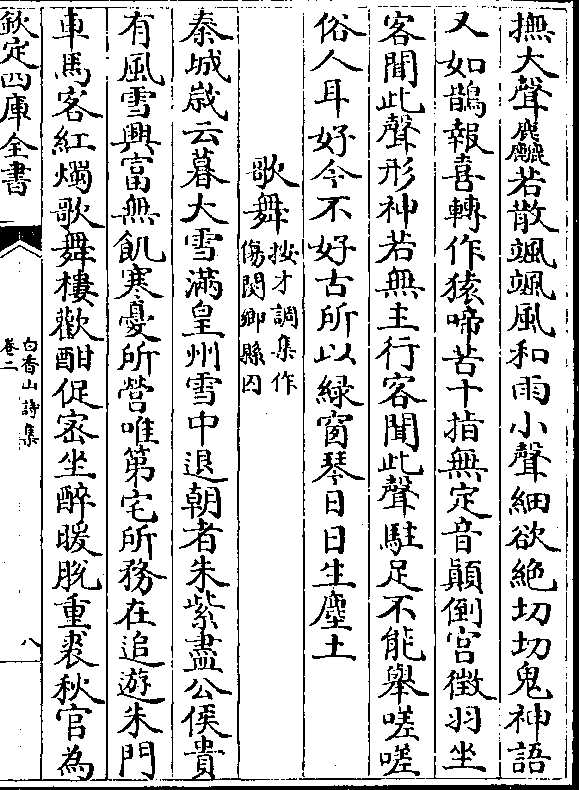 撫大聲麤若散颯颯風和雨小聲細欲絶切切鬼神語
又如鵲報喜轉作猿啼苦十指無定音顛倒宮徵羽坐
客聞此聲形神若無主行客聞此聲駐足不能舉嗟嗟
俗人耳好今不好古所以緑窗琴日日生塵土
歌舞
按才調集作
傷閿鄉縣囚
秦城歲云暮大雪滿皇州雪中退朝者朱紫盡公侯貴
有風雪興富無飢寒憂所營唯第宅所務在追遊朱門
車馬客紅燭歌舞樓歡酣促宻坐醉暖脫重裘秋官為
欽定四庫全書
白香山詩集
卷二
八